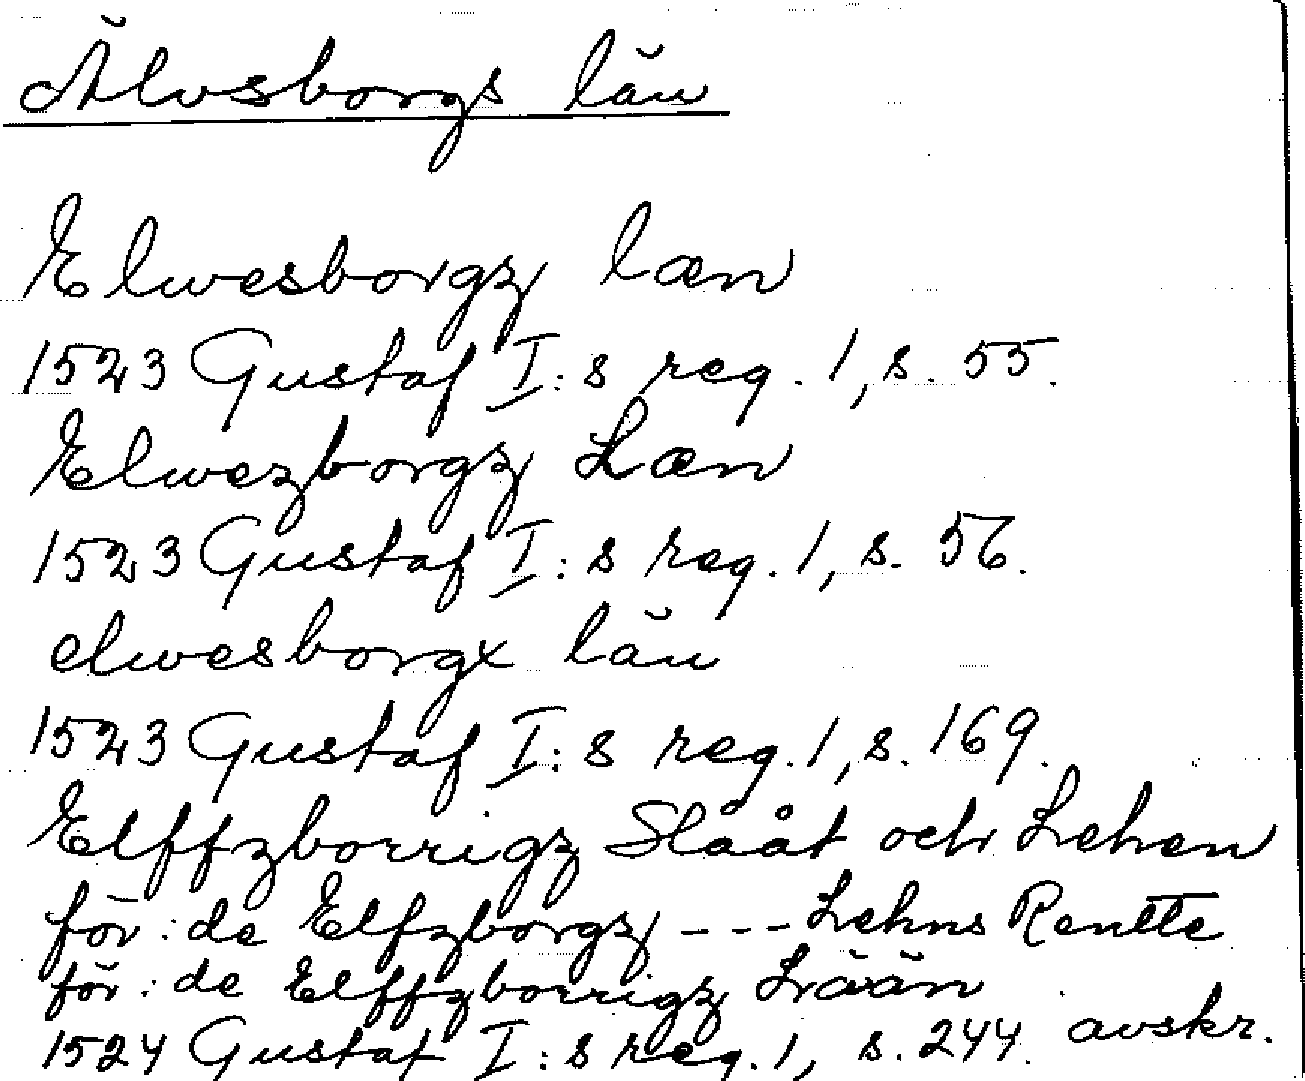 Älvsborgs län
Elwesborgz læn
1523 Gustaf I:s reg. 1, s. 55.
Elwezborgz Læn
1523 Gustaf I:s reg. 1, s. 56.
elwesborgx län
1523 Gustaf I:s reg. 1, s. 169.
Elffzborrigz Slååt och Lehen
för: de Elfzborgz --- Lehns Rentte
för: de Elffzborrigz Lään
1524 Gustaf I:s reg. 1, s. 244. avskr.